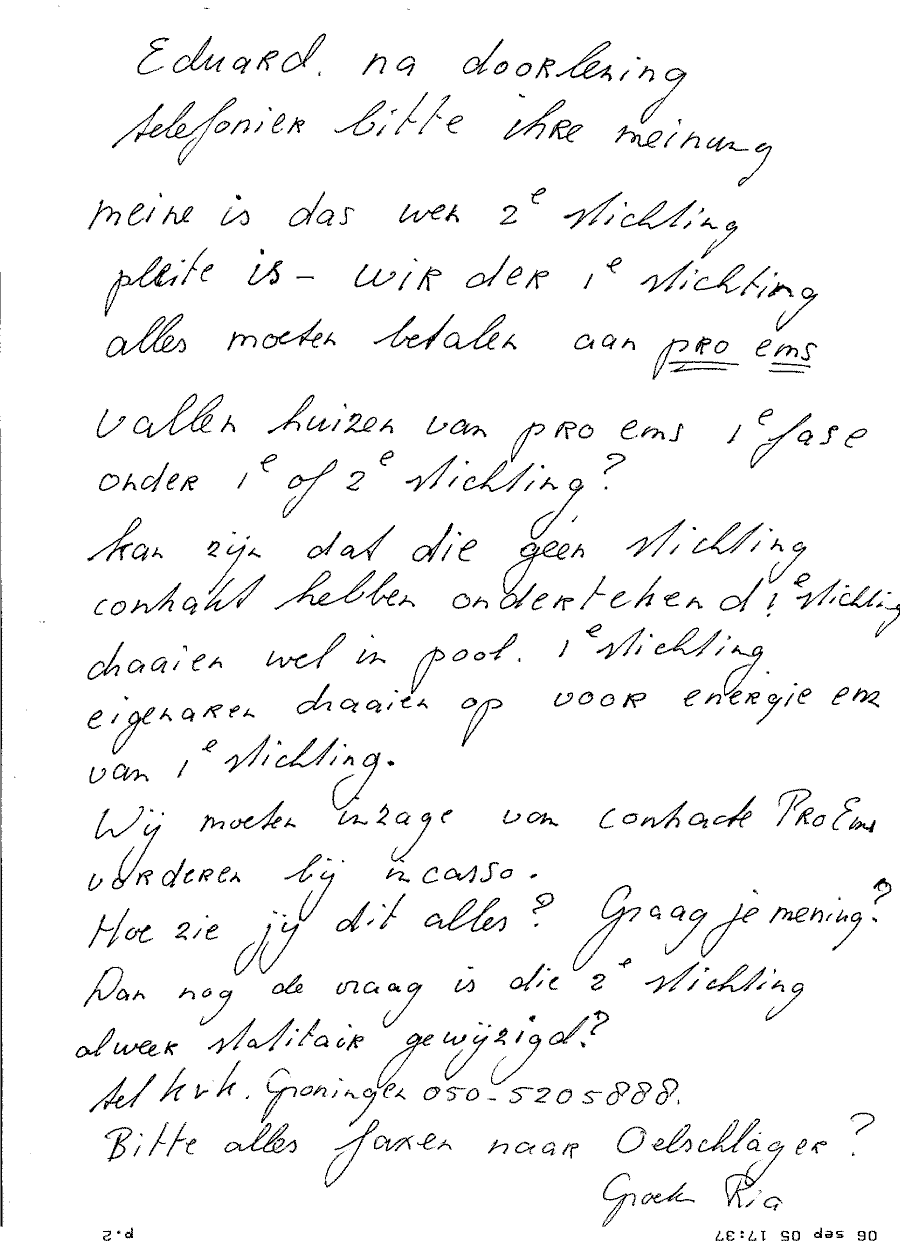 Eduard. na doorlening
telefonier bitte ihre meinung
meine is das wen 2e stichting
pleite is - wir der 1e stichting
alles moeten betalen aan pro ems
vallen huizen van pro ems 1e fase
onder 1e of 2e stichting?
kan zijn dat die géén stichting
contrakt hebben ondertekend! 1e stichting
draaien wel in pool. 1e stichting
eigenaren draaien op voor energie enz
van 1e stichting.
Wij moeten inzage van contracte Pro Ems
vorderen bij incasso.
Hoe zie jij dit alles? Graag je mening?
Dan nog de vraag is die 2e stichting
alweer statitair gewijzigd?
tel kvk. Groningen 050-5205888.
Bitte alles faxen naar Oelschläger?
Groet Ria
06 sep 05 17:37
p.2